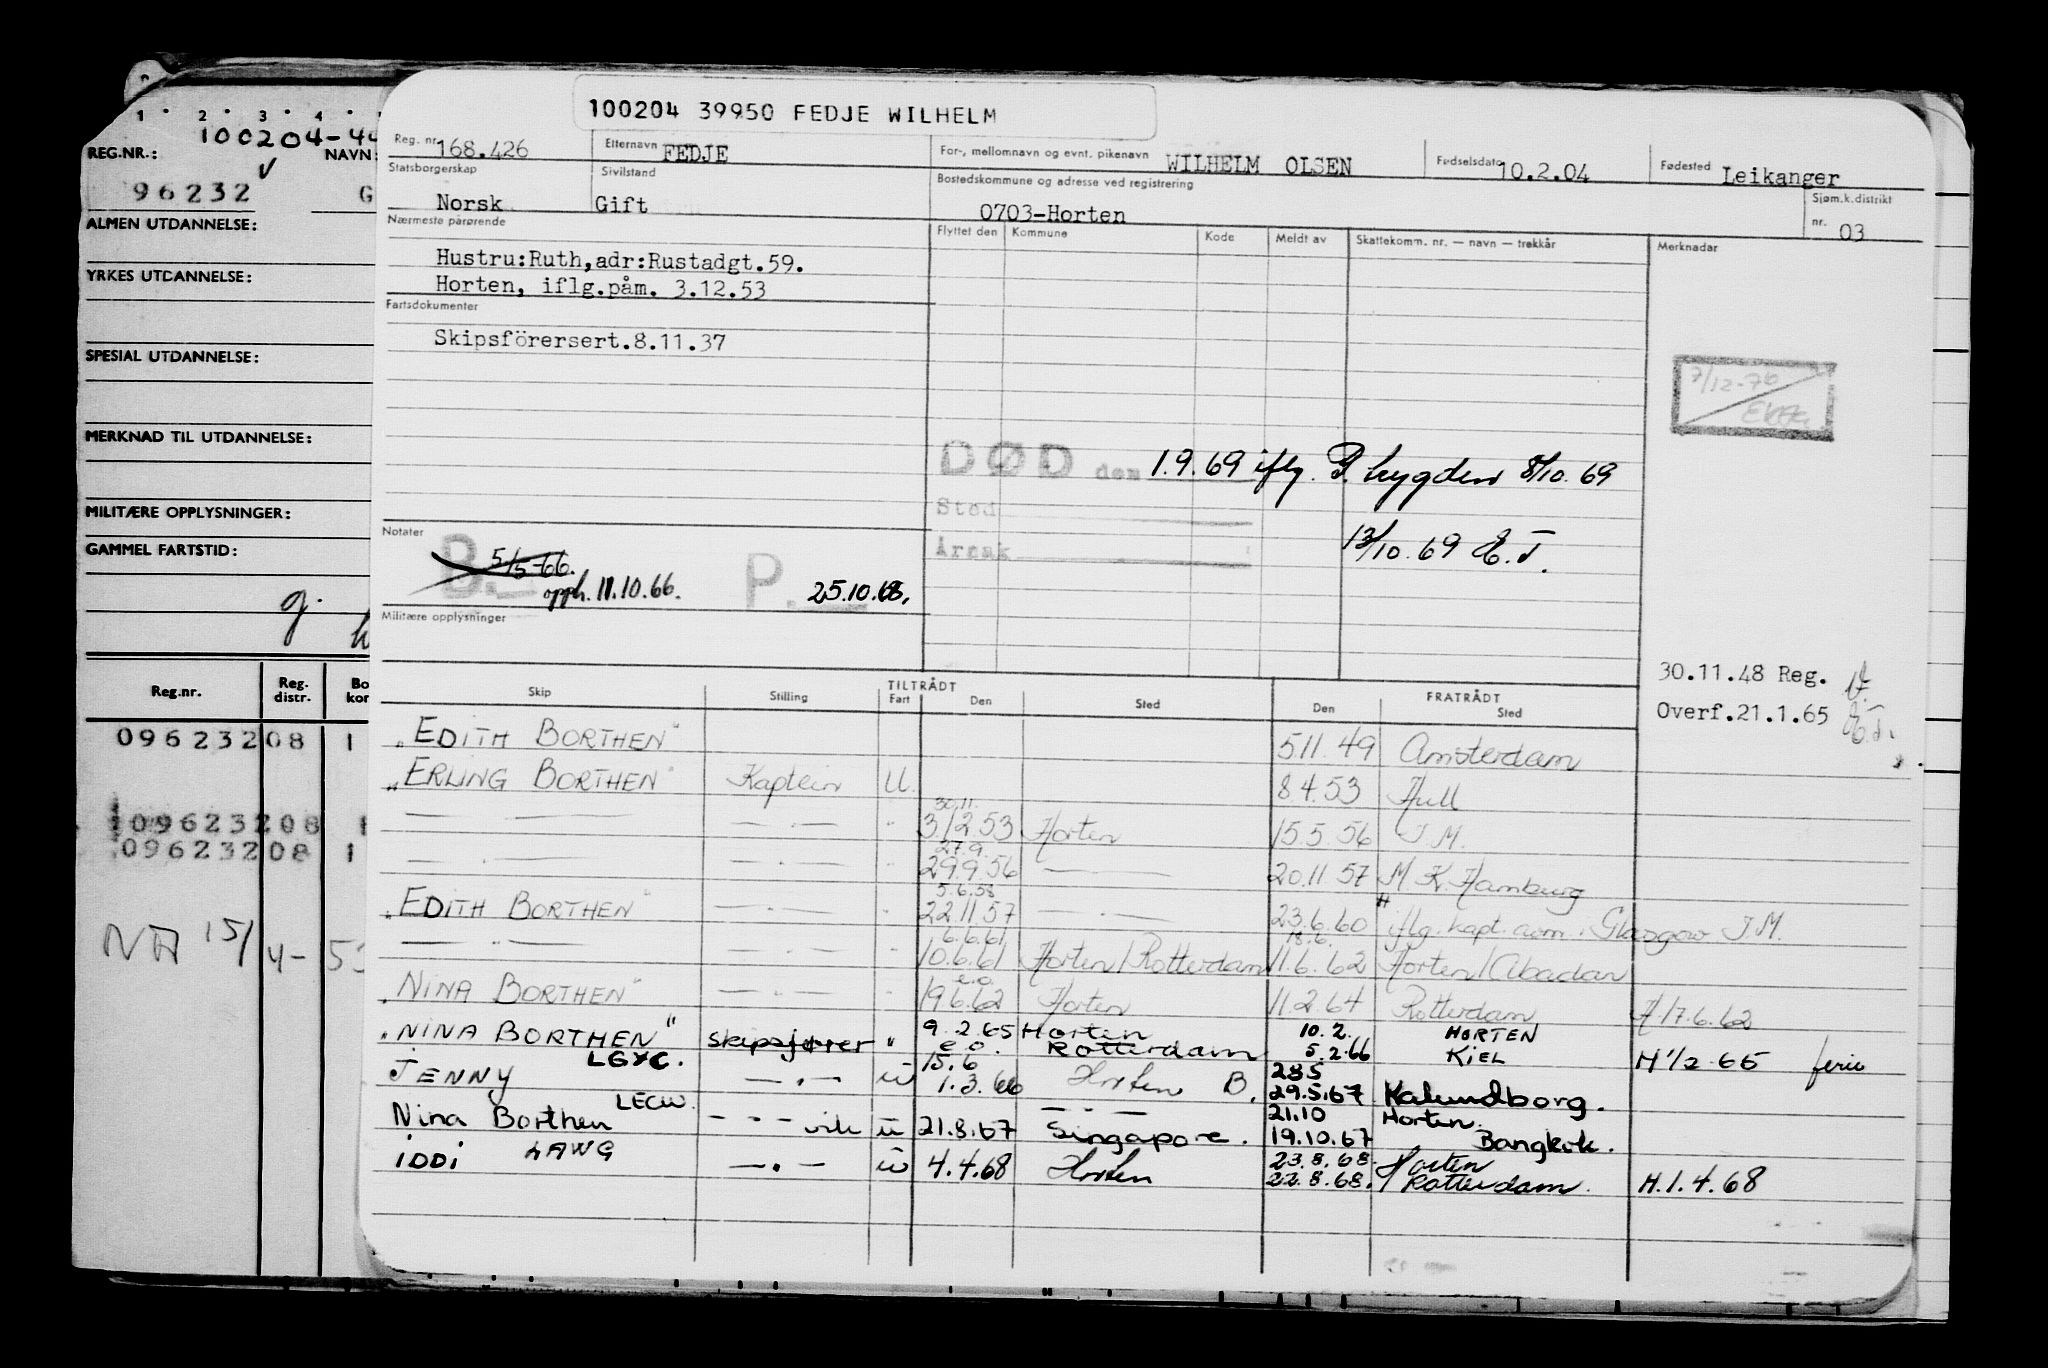 1 2 3 4
100204-44
REG.NR.: NAVN:
96232 G
ALMEN UTDANNELSE:
YRKES UTDANNELSE:
SPESIAL UTDANNELSE:
MERKNAD TIL UTDANNELSE:
MILITÆRE OPPLYSNINGER:
GAMMEL FARTSTID:
g.
Reg.nr. Reg. distr. Bo kor
09623208 1
09623208 1
09623208 1
NA 15/4-53
100204 39950 FEDJE WILHELM
Reg. nr. 168.426 Etternavn FEDJE For-, mellomnavn og evnt. pikenavn WILHELM OLSEN Fødselsdato 10.2.04 Fødested Leikanger
Statsborgerskap Norsk Sivilstand Gift Bostedskommune og adresse ved registrering 0703-Horten Sjøm.k.distrikt nr. 03
Nærmeste pårørende Flyttet den Kommune Kode Meldt av Skattekomm. nr. — navn — trekkår Merknadar
Hustru:Ruth,adr:Rustadgt.59.
Horten, iflg.påm. 3.12.53
Fartsdokumenter
Skipsförersert.8.11.37
7/12-76
DØD den 1.9.69 iflg. P. trygden 8/10.69
Sted
Årsak 13/10.69 E.T.
Notater
B. 5/5-66.
opph. 11.10.66. P. 25.10.68.
Militære opplysninger
30.11.48 Reg.
Overf.21.1.65 E.T.
Skip Stilling TILTRÅDT Fart Den Sted FRATRÅDT Den Sted
"EDITH BORTHEN" 5.11.49 Amsterdam
"ERLING BORTHEN" Kaptein U. 8.4.53 Hull
— . — — . — " 30.11. 3/12.53 Horten 15.5.56 I.M.
— . — — . — " 27.9. 29.9.56 — 20.11.57 M.K. Hamburg
"EDITH BORTHEN" — . — " 5.6.58 22.11.57 — . — 23.6.60 iflg. kapt. rom. Glasgow I.M.
— " — — . — " 6.6.61 10.6.61 Horten/Rotterdam 18.6. 11.6.62 Horten/Abadan
"NINA BORTHEN" — . — " e.o. 19.6.62 Horten 11.2.64 Rotterdam H 17.6.62
"NINA BORTHEN" LGYC. Skipsfører " 9.2.65 e.o. 15.6 Horten Rotterdam 10.2. 5.2.66 HORTEN KIEL H 1/2-65 ferie
JENNY LECW. — . — u 1.3.66 Horten B. 28.5 29.5.67 Kalundborg.
Nina Borthen — " — vik u 21.8.67 — . — Singapore. 21.10 19.10.67 Horten. Bangkok.
IDDI LAWG — . — u 4.4.68 Horten 23.8.68. 22.8.68. Horten Rotterdam. H.1.4.68